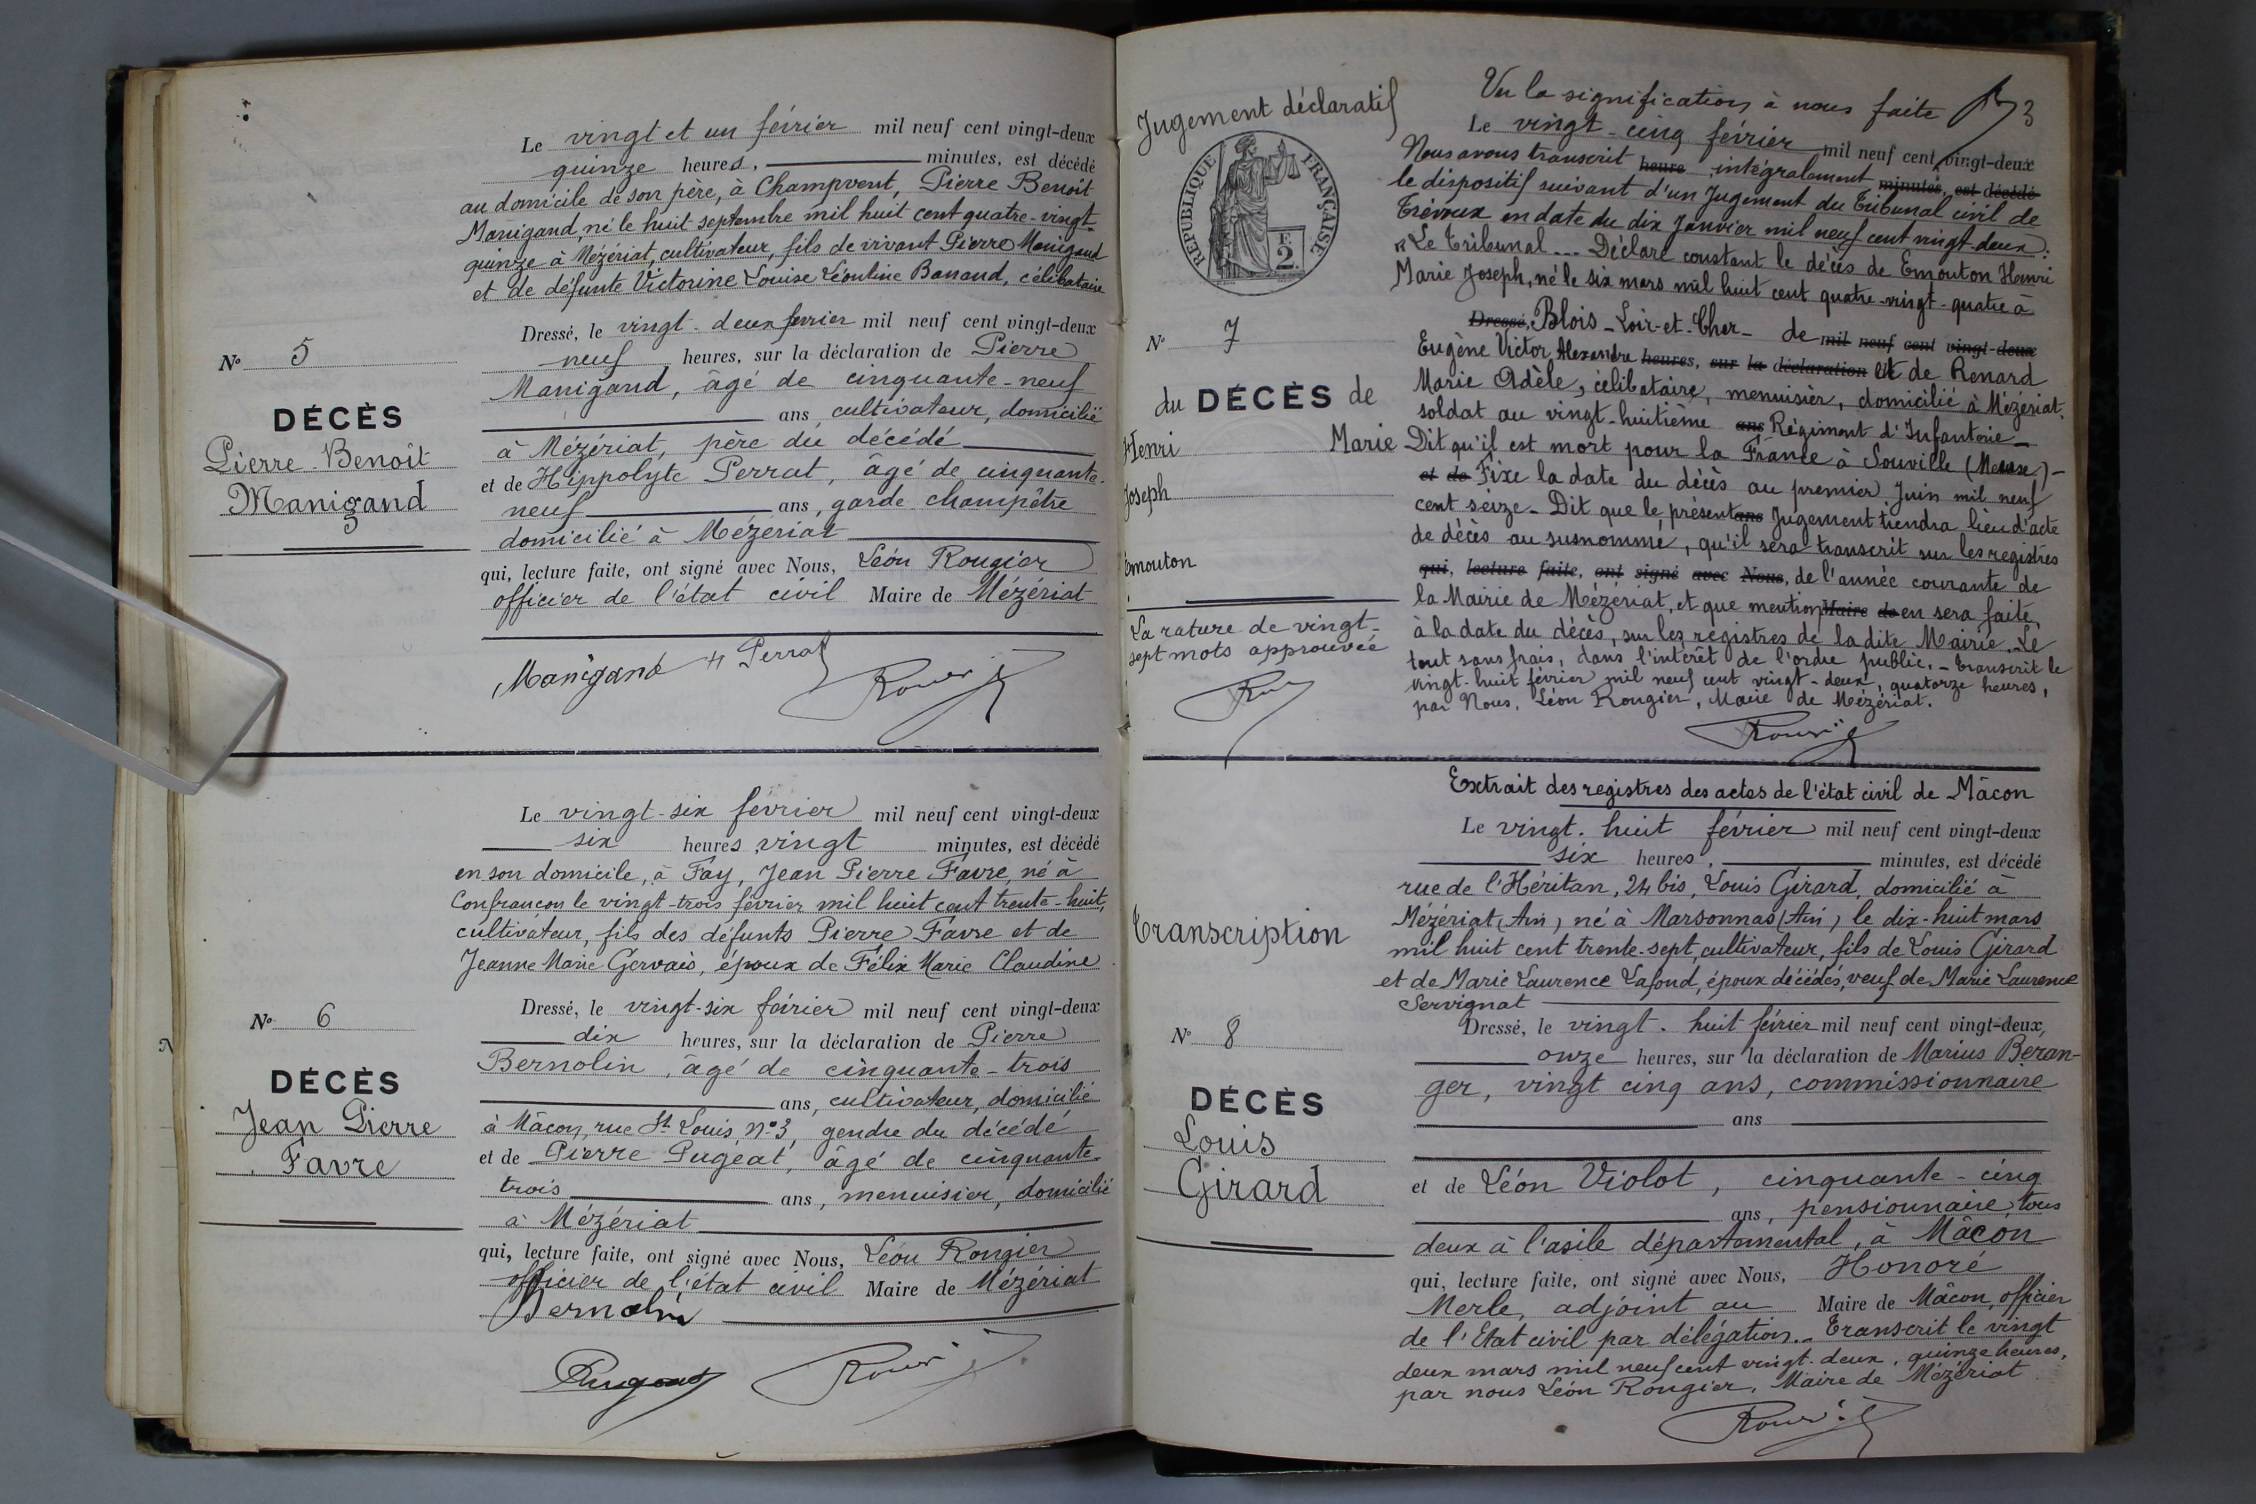 Le vingt et un février mil neuf cent vingt-deux
quinze heures, minutes, est décédé
au domicile de son père, à Champvent, Pierre Benoît
Manigand, né le huit septembre mil huit cent quatre-vingt-
quinze à Mézériat, cultivateur, fils de vivant Pierre Manigand
et de défunte Victorine Louise Léontine Banand, célibataire
Dressé, le vingt-deux février mil neuf cent vingt-deux
neuf heures, sur la déclaration de Pierre
Manigand, âgé de cinquante-neuf
ans, cultivateur, domicilié
à Mézériat, père du décédé
et de Hippolyte Perrat, âgé de cinquante-
neuf ans, garde champêtre
domicilié à Mézériat
qui, lecture faite, ont signé avec Nous, Léon Rougier
officier de l'état civil Maire de Mézériat
Manigand H Perrat
N° 5
DÉCÈS
Pierre Benoît
Manigand
Le vingt-six février mil neuf cent vingt-deux
six heures vingt minutes, est décédé
en son domicile, à Fay, Jean Pierre Favre, né à
Confrançon le vingt-trois février mil huit cent trente-huit,
cultivateur, fils des défunts Pierre Favre et de
Jeanne Marie Gervais, époux de Félix Marie Claudine
Dressé, le vingt-six février mil neuf cent vingt-deux
dix heures, sur la déclaration de Pierre
Bernolin, âgé de cinquante-trois
ans, cultivateur, domicilié
à Mâcon, rue St Louis, n° 3, gendre du décédé
et de Pierre Pugeat, âgé de cinquante-
trois ans, menuisier, domicilié
à Mézériat
qui, lecture faite, ont signé avec Nous, Léon Rougier
officier de l'état civil Maire de Mézériat
Bernolin
Pugeat
N° 6
DÉCÈS
Jean Pierre
Favre
Jugement déclaratif
RÉPUBLIQUE FRANÇAISE
2 F.
N° 7
du DÉCÈS de
Henri Marie
Joseph
Émouton
La rature de vingt-
sept mots approuvée
3
Vu la signification à nous faite
Le vingt-cinq février mil neuf cent vingt-deux
Nous avons transcrit heure intégralement minutes, est décédé
le dispositif suivant d'un Jugement du Tribunal civil de
Trévoux en date du dix Janvier mil neuf cent vingt-deux:
"Le Tribunal ... Déclare constant le décès de Emouton Henri
Marie Joseph, né le six mars mil huit cent quatre-vingt-quatre à
Dressé, Blois - Loir-et-Cher - de mil neuf cent vingt-deux
Eugène Victor Alexandre heures, sur la déclaration et de Renard
Marie Adèle, célibataire, menuisier, domicilié à Mézériat,
soldat au vingt-huitième ans Régiment d'Infanterie -
Dit qu'il est mort pour la France à Souville (Meuse) -
et de Fixe la date du décès au premier Juin mil neuf
cent seize - Dit que le présent ans Jugement tiendra lieu d'acte
de décès au susnommé, qu'il sera transcrit sur les registres
qui, lecture faite, ont signé avec Nous, de l'année courante de
la Mairie de Mézériat, et que mention Maire de en sera faite,
à la date du décès, sur les registres de la dite Mairie. Le
tout sans frais, dans l'intérêt de l'ordre public. - Transcrit le
vingt-huit février mil neuf cent vingt-deux, quatorze heures,
par Nous, Léon Rougier, Maire de Mézériat.
Extrait des registres des actes de l'état civil de Mâcon
Le vingt-huit février mil neuf cent vingt-deux
six heures, minutes, est décédé
rue de l'Héritan, 24 bis, Louis Girard, domicilié à
Mézériat (Ain) né à Marsonnas (Ain) le dix-huit mars
mil huit cent trente-sept, cultivateur, fils de Louis Girard
et de Marie Laurence Lafond, époux décédés, veuf de Marie Laurence
Servignat
Dressé, le vingt-huit février mil neuf cent vingt-deux,
onze heures, sur la déclaration de Marius Beran-
ger, vingt cinq ans, commissionnaire
ans
et de Léon Violot, cinquante-cinq
ans, pensionnaire, tous
deux à l'asile départemental, à Mâcon
qui, lecture faite, ont signé avec Nous, Honoré
Merle, adjoint au Maire de Mâcon, officier
de l'Etat civil par délégation. - Transcrit le vingt
deux mars mil neuf cent vingt-deux, quinze heures,
par nous Léon Rougier, Maire de Mézériat
Transcription
N° 8
DÉCÈS
Louis
Girard